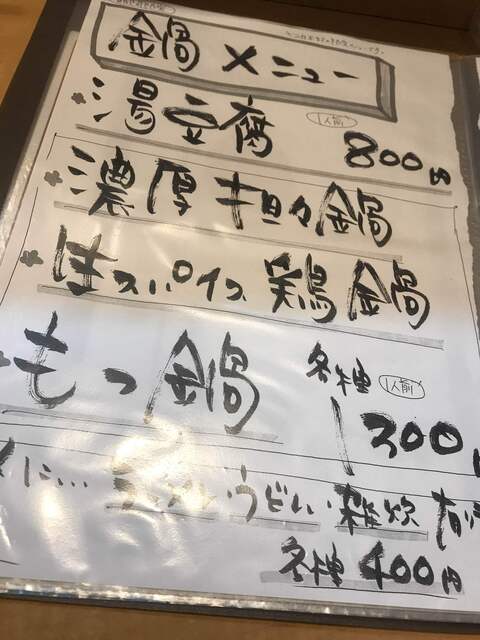 鍋メニュー
湯豆腐 1人前 800円
濃厚担々鍋
生スパイス鶏鍋
もつ鍋 各種 1人前 1300円
うどん 雑炊
各種 400円